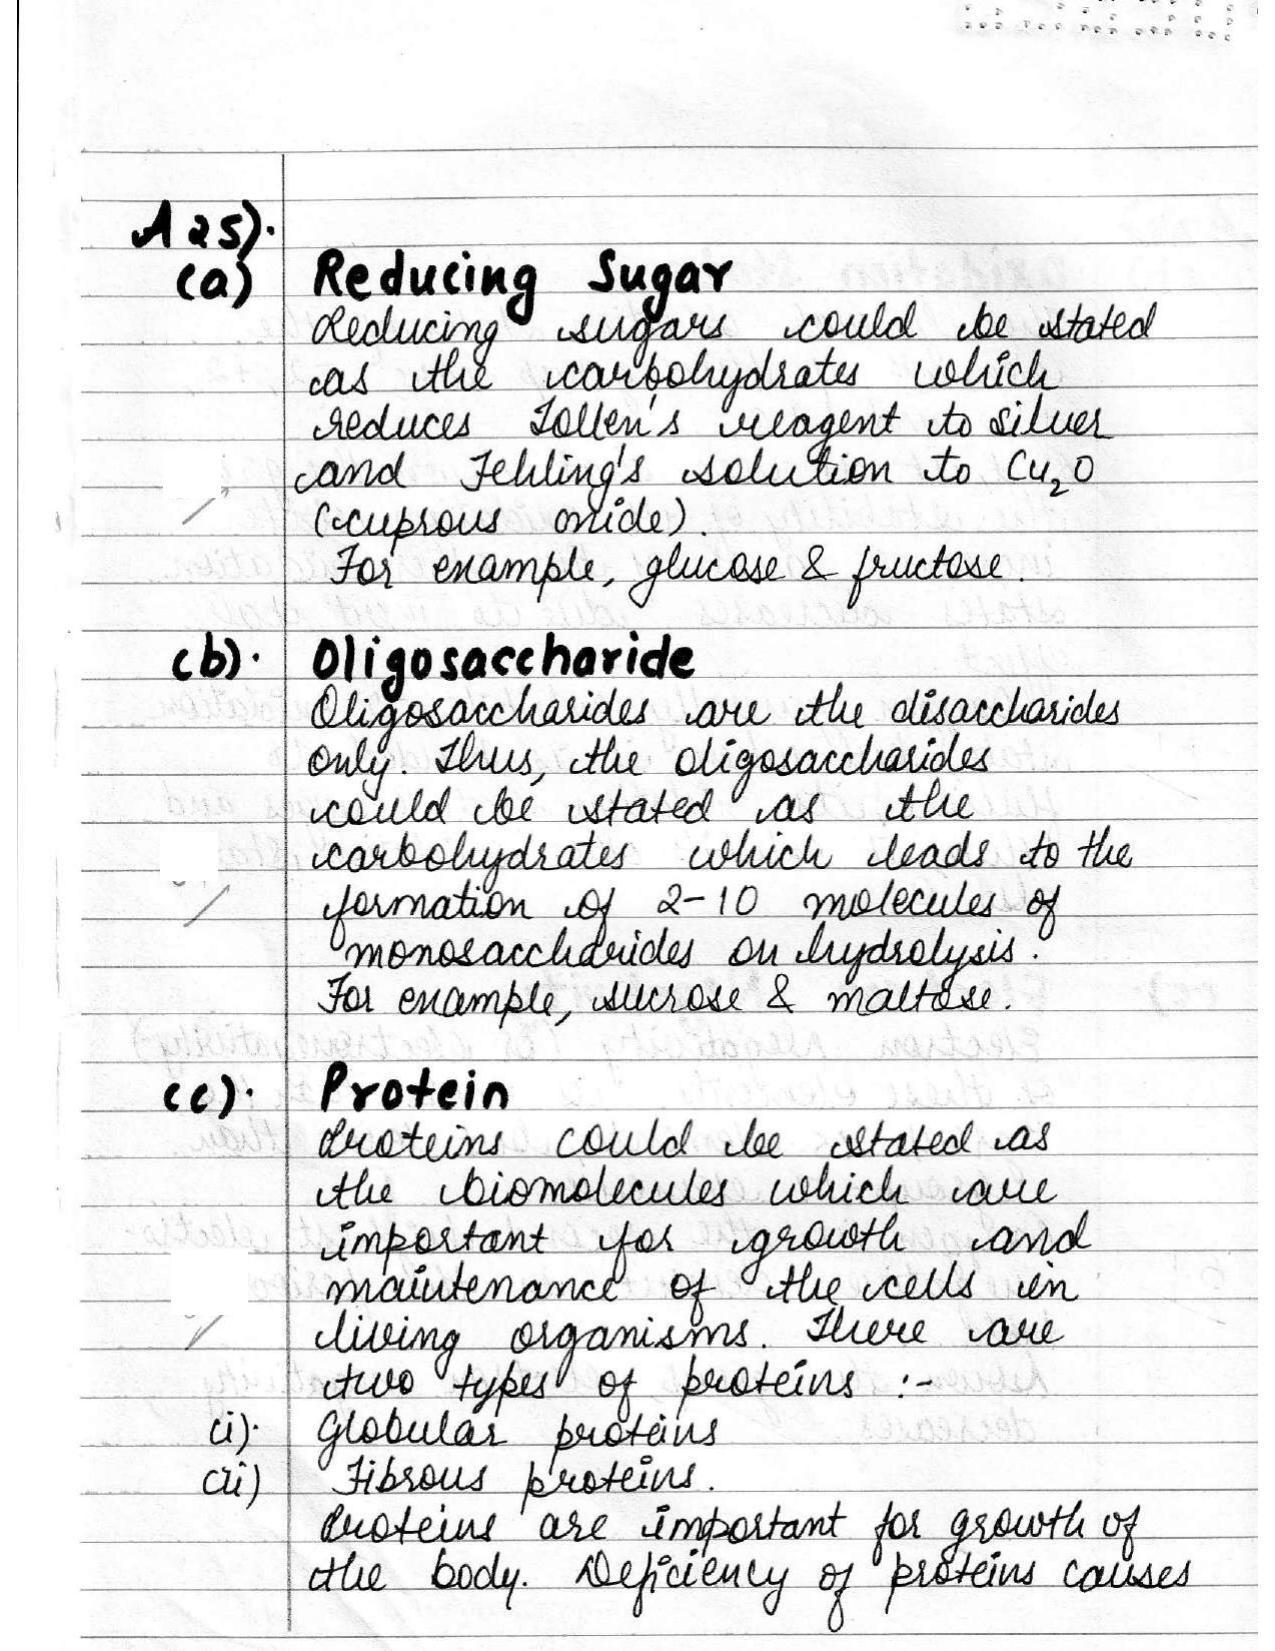 A25).
(a) Reducing Sugar
Reducing sugars could be stated
as the carbohydrates which
reduces Tollen's reagent to silver
and Fehling's solution to Cu₂O
(cuprous oxide).
For example, glucose & fructose.
(b). Oligosaccharide
Oligosaccharides are the disaccharides
only. Thus, the oligosaccharides
could be stated as the
carbohydrates which leads to the
formation of 2-10 molecules of
monosaccharides on hydrolysis.
For example, sucrose & maltose.
(c). Protein
Proteins could be stated as
the biomolecules which are
important for growth and
maintenance of the cells in
living organisms. There are
two types of proteins :-
(i). Globular proteins
(ii) Fibrous proteins.
Proteins are important for growth of
the body. Deficiency of proteins causes